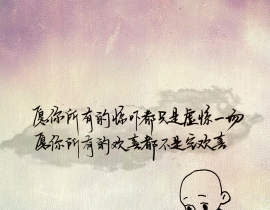 愿你所有的惊吓都只是虚惊一场
愿你所有的欢喜都不是空欢喜